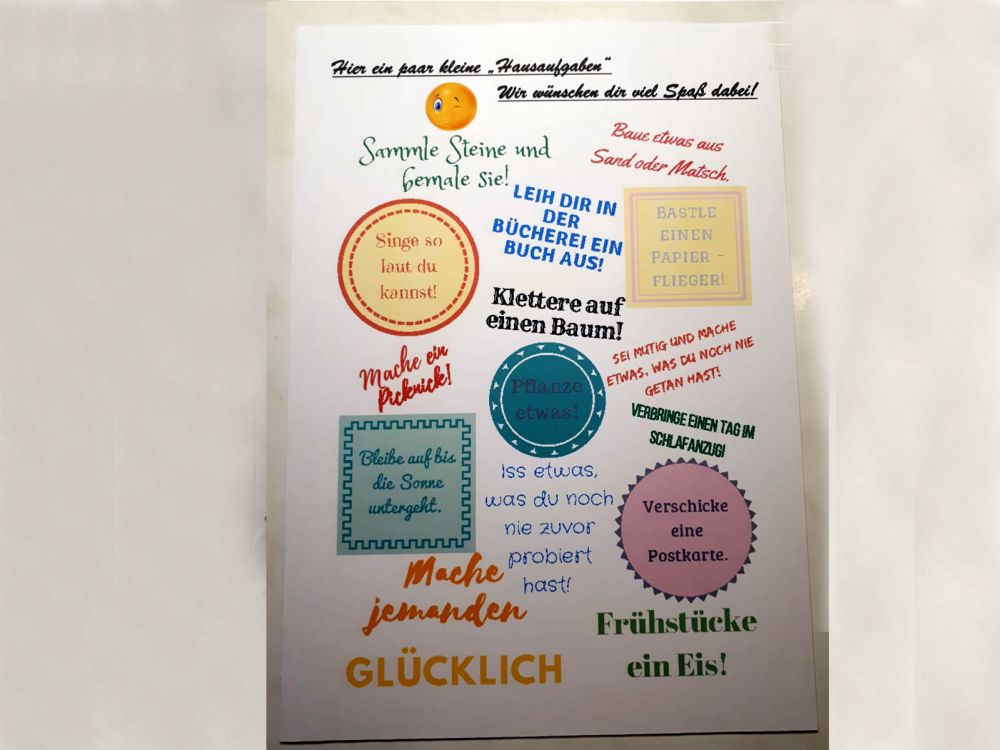 Hier ein paar kleine „Hausaufgaben“
Wir wünschen dir viel Spaß dabei!
Sammle Steine und
bemale sie!
Baue etwas aus
Sand oder Matsch.
LEIH DIR IN
DER
BÜCHEREI EIN
BUCH AUS!
BASTLE
EINEN
PAPIER -
FLIEGER!
Singe so
laut du
kannst!
Klettere auf
einen Baum!
Mache ein
Picknick!
Pflanze
etwas!
SEI MUTIG UND MACHE
ETWAS, WAS DU NOCH NIE
GETAN HAST!
VERBRINGE EINEN TAG IM
SCHLAFANZUG!
Bleibe auf bis
die Sonne
untergeht.
Iss etwas,
was du noch
nie zuvor
probiert
hast!
Verschicke
eine
Postkarte.
Mache
jemanden
GLÜCKLICH
Frühstücke
ein Eis!